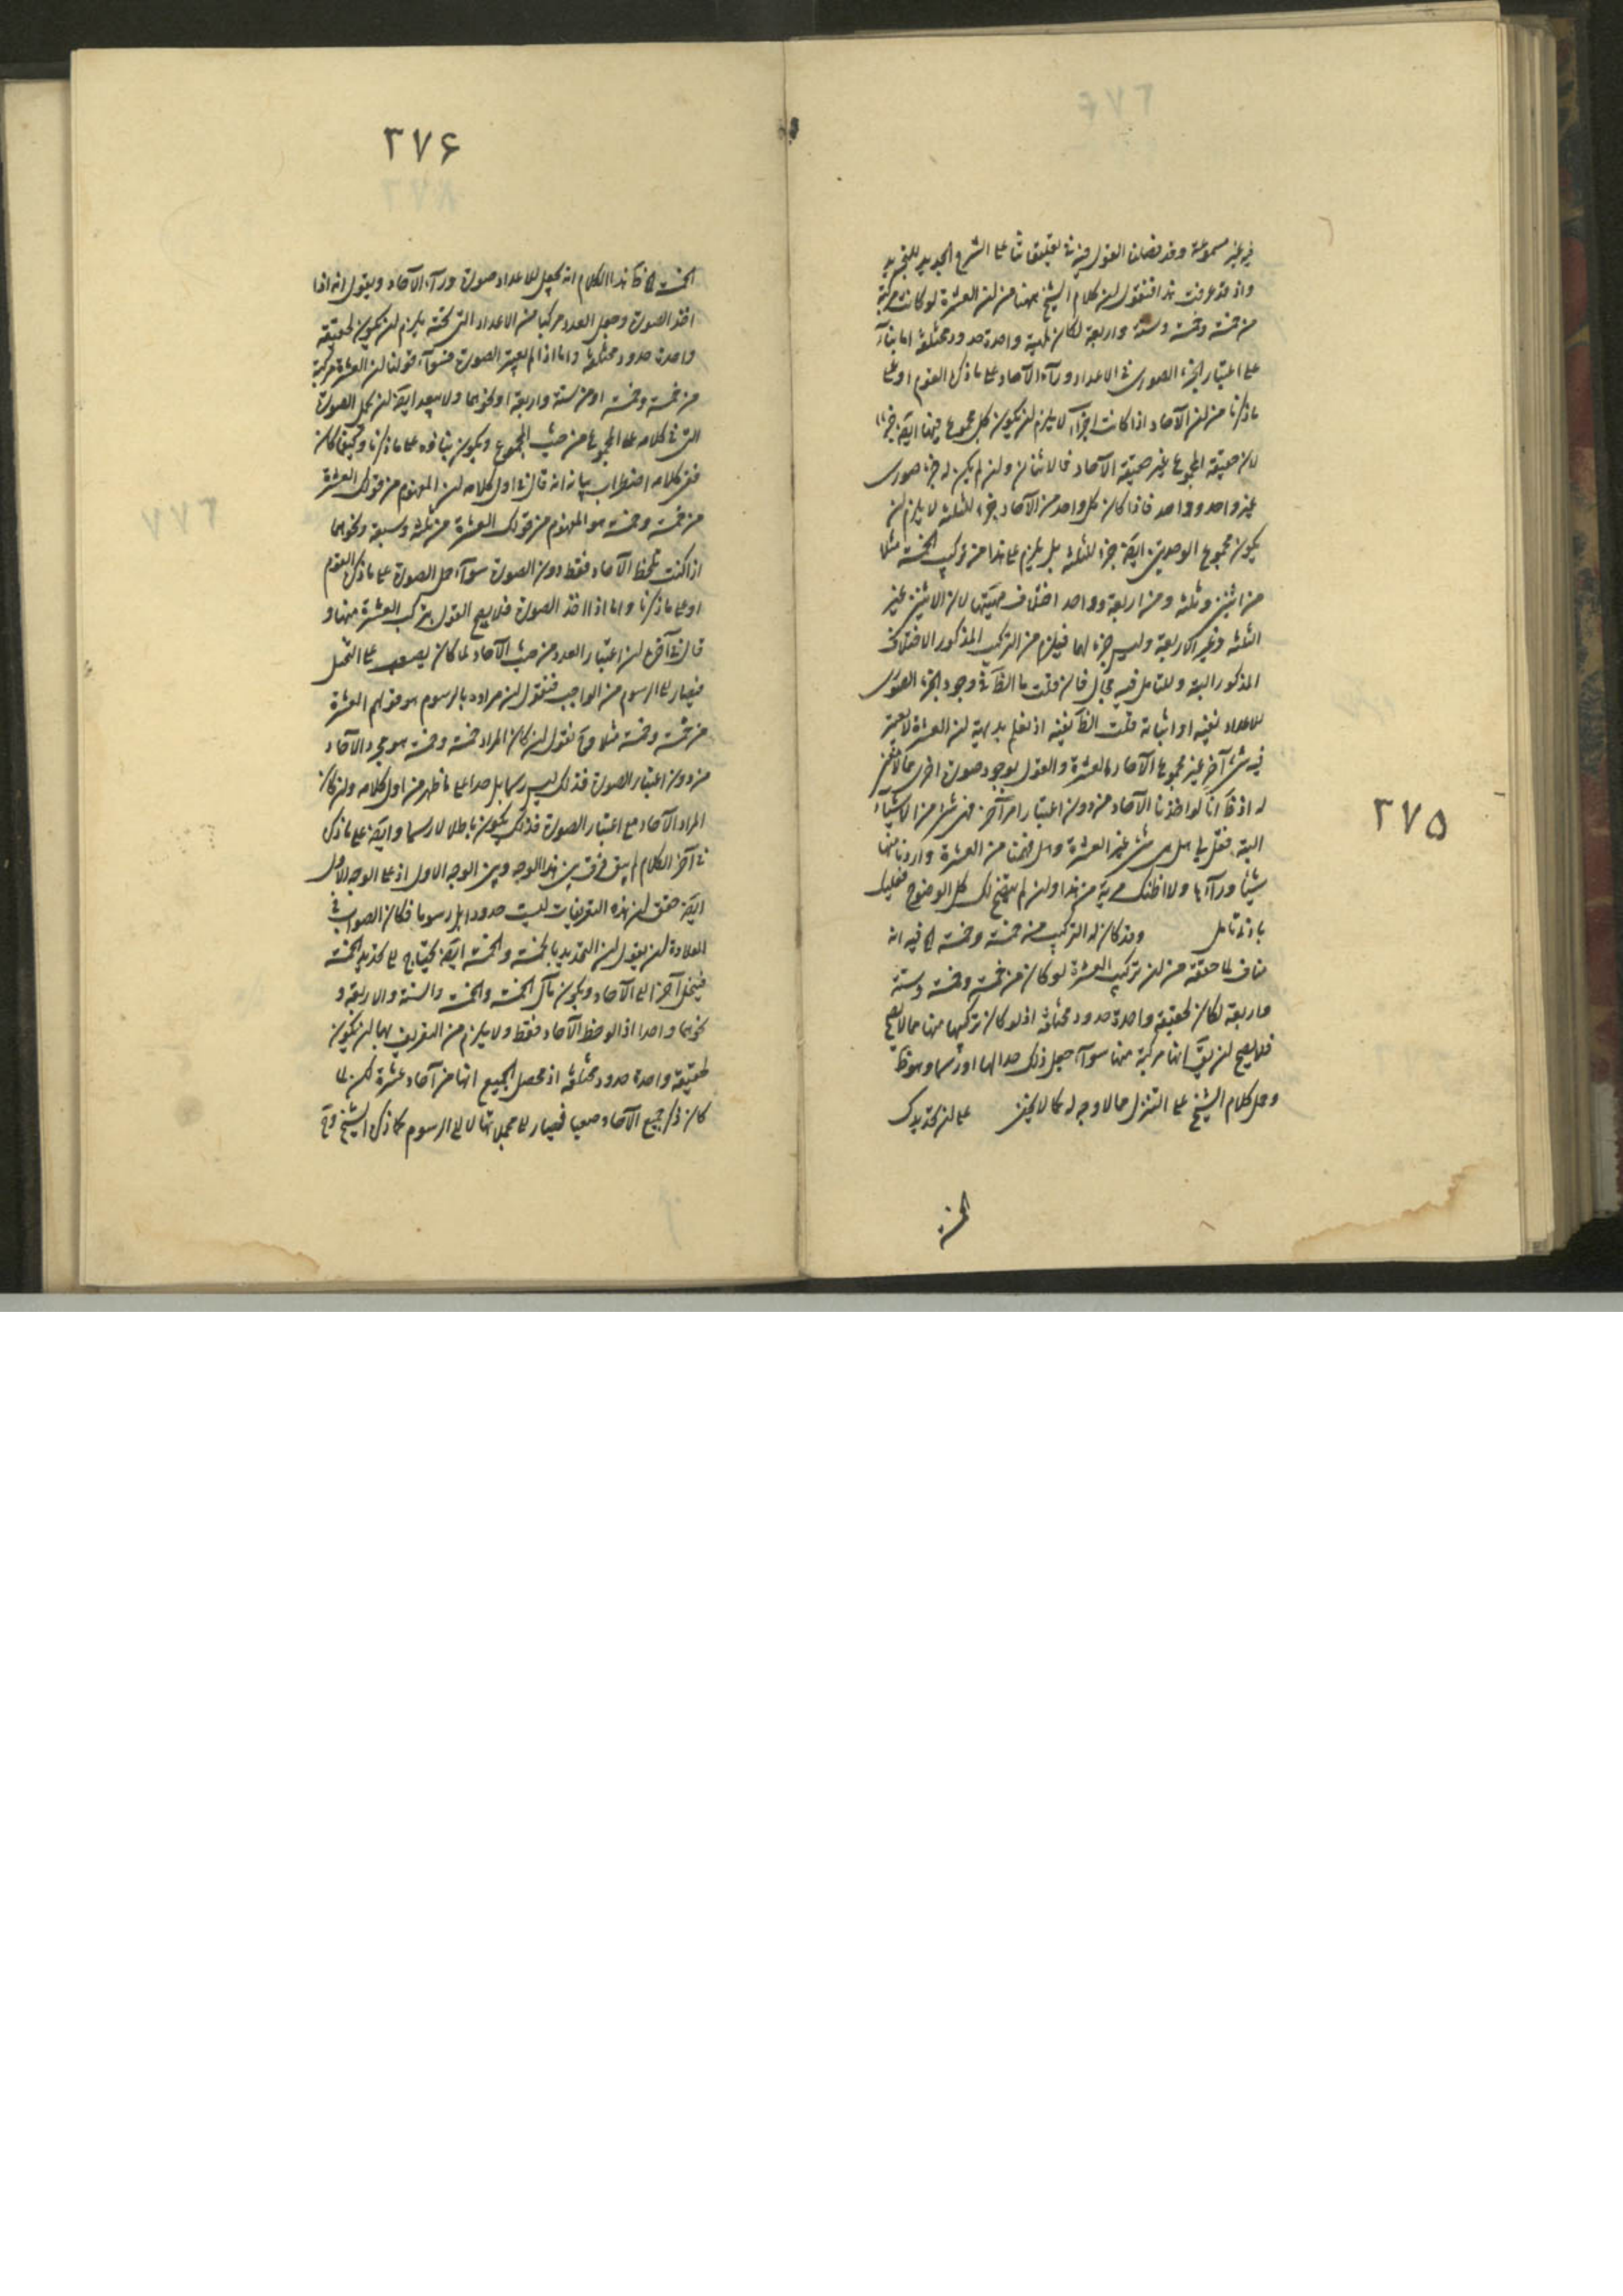 ٢٧٥
غير مسموعة وقد فصلنا القول فيه في تعليقاتنا على الشرح الجديد للتجريد
واذ قد عرفت هذا فنقول ان كلام الشيخ ههنا من ان العشرة لو كانت مركبة
من خمسة وخمسة وستة واربعة لكان لمهية واحدة حدود مختلفة اما بناء
على اعتبار الجزء الصورى فى الاعداد ورآء الآحاد على ما ذكره القوم او على
ما ذكرنا من ان الآحاد اذا كانت اجزآء لا يلزم ان يكون كل مجموع منها ايضا جزءا
لان حقيقة المجموع غير حقيقة الآحاد فالاثنان وان لم يكن له جزء صورى
غير واحد وواحد فاذا كان كل واحد من الآحاد جزء للثلثة لا يلزم ان
يكون مجموع الوحدتين ايضا جزء للثلثة بل يلزم على هذا من تركيب الخمسة مثلا
من اثنين وثلثة ومن اربعة وواحد اختلاف مهيتها لان الاثنين غير
الثلثة وغير الاربعة وليس جزء لهما فيلزم من التركيب المذكور الاختلاف
المذكور البتة وللتامل فيه مجال فان قلت ما الظ فى وجود الجزء الصورى
للاعداد نفيه او اثباته قلت الظ نفيه اذ نعلم بديهة ان العشرة لا يعتبر
فيه شىء آخر غير مجموع الآحاد بالعشرة والقول بوجود صورة اخرى مما لا معنى
له اذ ظ انا لو اخذنا الآحاد من دون اعتبار امر آخر فهى شىء من الاشياء
البتة فقل لى هل هى شىء غير العشرة وهل فهمنا من العشرة واردنا منها
شيئا ورآءها ولا اظنك فى مرية من هذا وان لم يتضح لك كل الوضوح فعليك
بادنى تامل وقد كان له التركيب من خمسة وخمسة اه فيه انه
مناف لما حققه من ان تركيب العشرة لو كان من خمسة وخمسة وستة
واربعة لكان لحقيقة واحدة حدود مختلفة اذ لو كان تركبها منها مما لا يصح
فلا يصح ان يق انها مركبة منها سوآء جعل ذلك حدا لها او رسما وهو ظ
وحمل كلام الشيخ على التنزل مما لا وجه له كما لا يخفى على ان تحديدك
الخمسة
٢٧۶
الخمسة اه ظ هذا الكلام انه يجعل للاعداد صورة ورآء الآحاد ويقول انه اذا
اخذ الصورة وجعل العدد مركبا من الاعداد التى تحته يلزم ان يكون لحقيقة
واحدة حدود مختلفة واما اذا لم يعتبر الصورة فسوآء قولنا ان العشرة مركبة
من خمسة وخمسة او من ستة واربعة او نحوهما ولا يبعد ايضا ان يحمل الصورة
التى فى كلامه على المجموع من حيث المجموع ويكون بناؤه على ما ذكرنا وكيفما كان
ففى كلامه اضطراب بيانه انه قال فى اول كلامه ان المفهوم من قولك العشرة
من خمسة وخمسة هو المفهوم من قولك العشرة من ثلثة وسبعة ونحوهما
اذا كنت تلحظ الآحاد فقط دون الصورة سوآء حمل الصورة على ما ذكره القوم
او على ما ذكرنا واما اذا اخذ الصورة فلا يصح القول بتركب العشرة منها و
قال فى آخره ان اعتبار العدد من حيث الآحاد لما كان يصعب على التخيل
فيصار الى الرسوم من الواجب فنقول ان مراده بالرسوم هو قولهم العشرة
من خمسة وخمسة مثلا وح نقول ان كان المراد خمسة وخمسة هو مجرد الآحاد
من دون اعتبار الصورة فذلك ليس رسما بل حدا على ما ظهر من اول كلامه وان كان
المراد الآحاد مع اعتبار الصورة فذلك يكون باطلا لا رسما وايضا على ما ذكره
فى آخر الكلام لم يبق فرق بين هذا الوجه وبين الوجه الاول اذ على الوجه الاول
ايضا حقق ان هذه التعريفات ليست حدودا بل رسوما فكان الصواب فى
العلاوة ان يقول ان التحديد بالخمسة والخمسة ايضا يحتاج الى تحديد الخمسة
فينحل آخر الى الآحاد ويكون مآل الخمسة والخمسة والستة والاربعة و
نحوهما واحدا اذا لوحظ الآحاد فقط ولا يلزم من التعريف بهما ان يكون
لحقيقة واحدة حدود مختلفة اذ محصل الجميع انها من آحاد عشرة لكن لما
كان ذكر جميع الآحاد صعبا فيصار الى مجملاتها لا الى الرسوم كما ذكره الشيخ وح